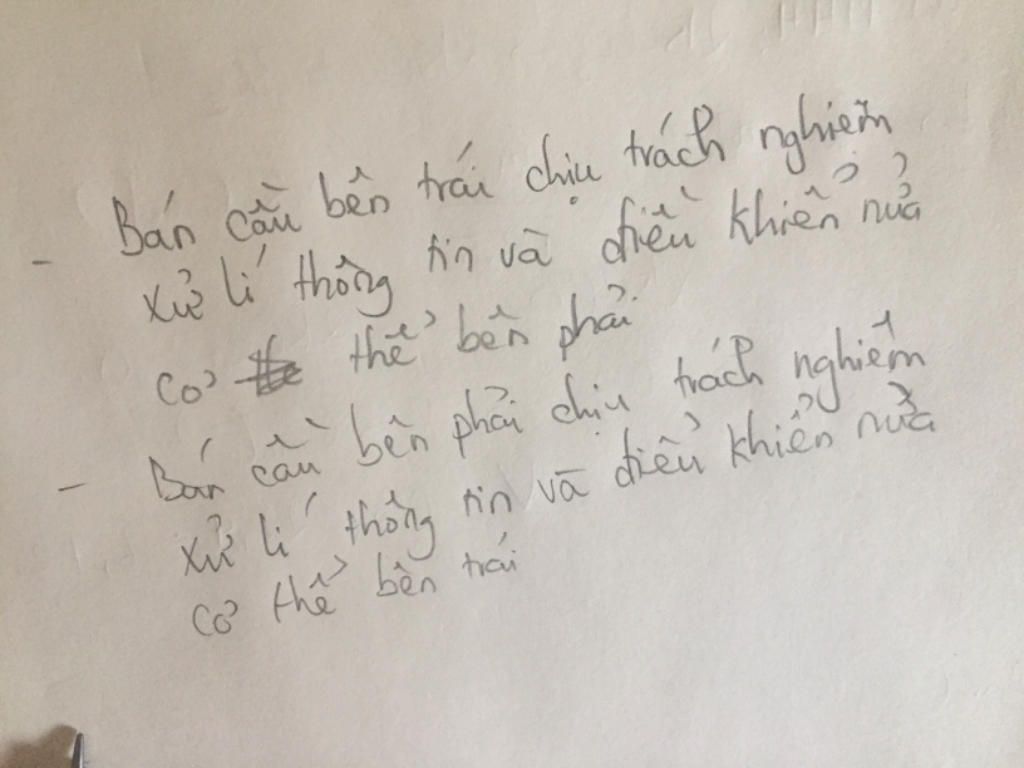 - Bán cầu bên trái chịu trách nghiễm
xử lí thông tin và điều khiển nửa
cơ thể bên phải
- Bán cầu bên phải chịu trách nghiểm
xử lí thông tin và điều khiển nửa
cơ thể bên trái